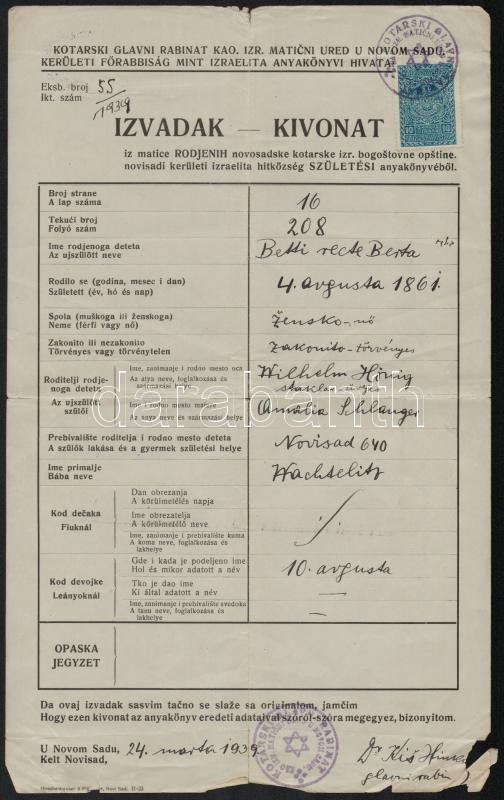 KOTARSKI GLAVNI RABINAT KAO IZR. MATIČNI URED U NOVOM SADU.
KERÜLETI FŐRABBISÁG MINT IZRAELITA ANYAKÖNYVI HIVATAL
Eksb. broj 55
Ikt. szám /1939
IZVADAK — KIVONAT
iz matice RODJENIH novosadske kotarske izr. bogoštovne opštine.
novisadi kerületi izraelita hitközség SZÜLETÉSI anyakönyvéből.
Broj strane
A lap száma 16
Tekući broj
Folyó szám 208
Ime rodjenoga deteta
Az ujszülött neve Betti recte Berta
Rodilo se (godina, mesec i dan)
Született (év, hó és nap) 4. avgusta 1861.
Spola (muškoga ili ženskoga)
Neme (férfi vagy nő) žensko-nő
Zakonito ili nezakonito
Törvényes vagy törvénytelen zakonito-törvényes
Roditelji rodjenoga deteta
Az ujszülött szülői
Ime, zanimanje i rodno mesto oca
Az atya neve, foglalkozása és származási helye
Wilhelm Hönig
staklar
Ime i rodno mesto matere
Az anya neve és származási helye
Amália Schlanger
Prebivalište roditelja i rodno mesto deteta
A szülők lakása és a gyermek születési helye Novisad 640
Ime primalje
Bába neve Wachtelitz
Kod dečaka
Fiuknál
Dan obrezanja
A körülmetélés napja
Ime obrezatelja
A körülmetélő neve
Ime, zanimanje i prebivalište kuma
A koma neve, foglalkozása és lakhelye
Kod devojke
Leányoknál
Gde i kada je podeljeno ime
Hol és mikor adatott a név 10. avgusta
Tko je dao ime
Ki által adatott a név —
Ime, zanimanje i prebivalište svedoka
A tanu neve, foglalkozása és lakhelye —
OPASKA
JEGYZET
Da ovaj izvadak sasvim tačno se slaže sa originalom, jamčim
Hogy ezen kivonat az anyakönyv eredeti adataival szóról-szóra megegyez, bizonyitom.
U Novom Sadu,
Kelt Novisad, 24. marta 1939
Dr Kiš
glavni rabin
darabanth
10 10